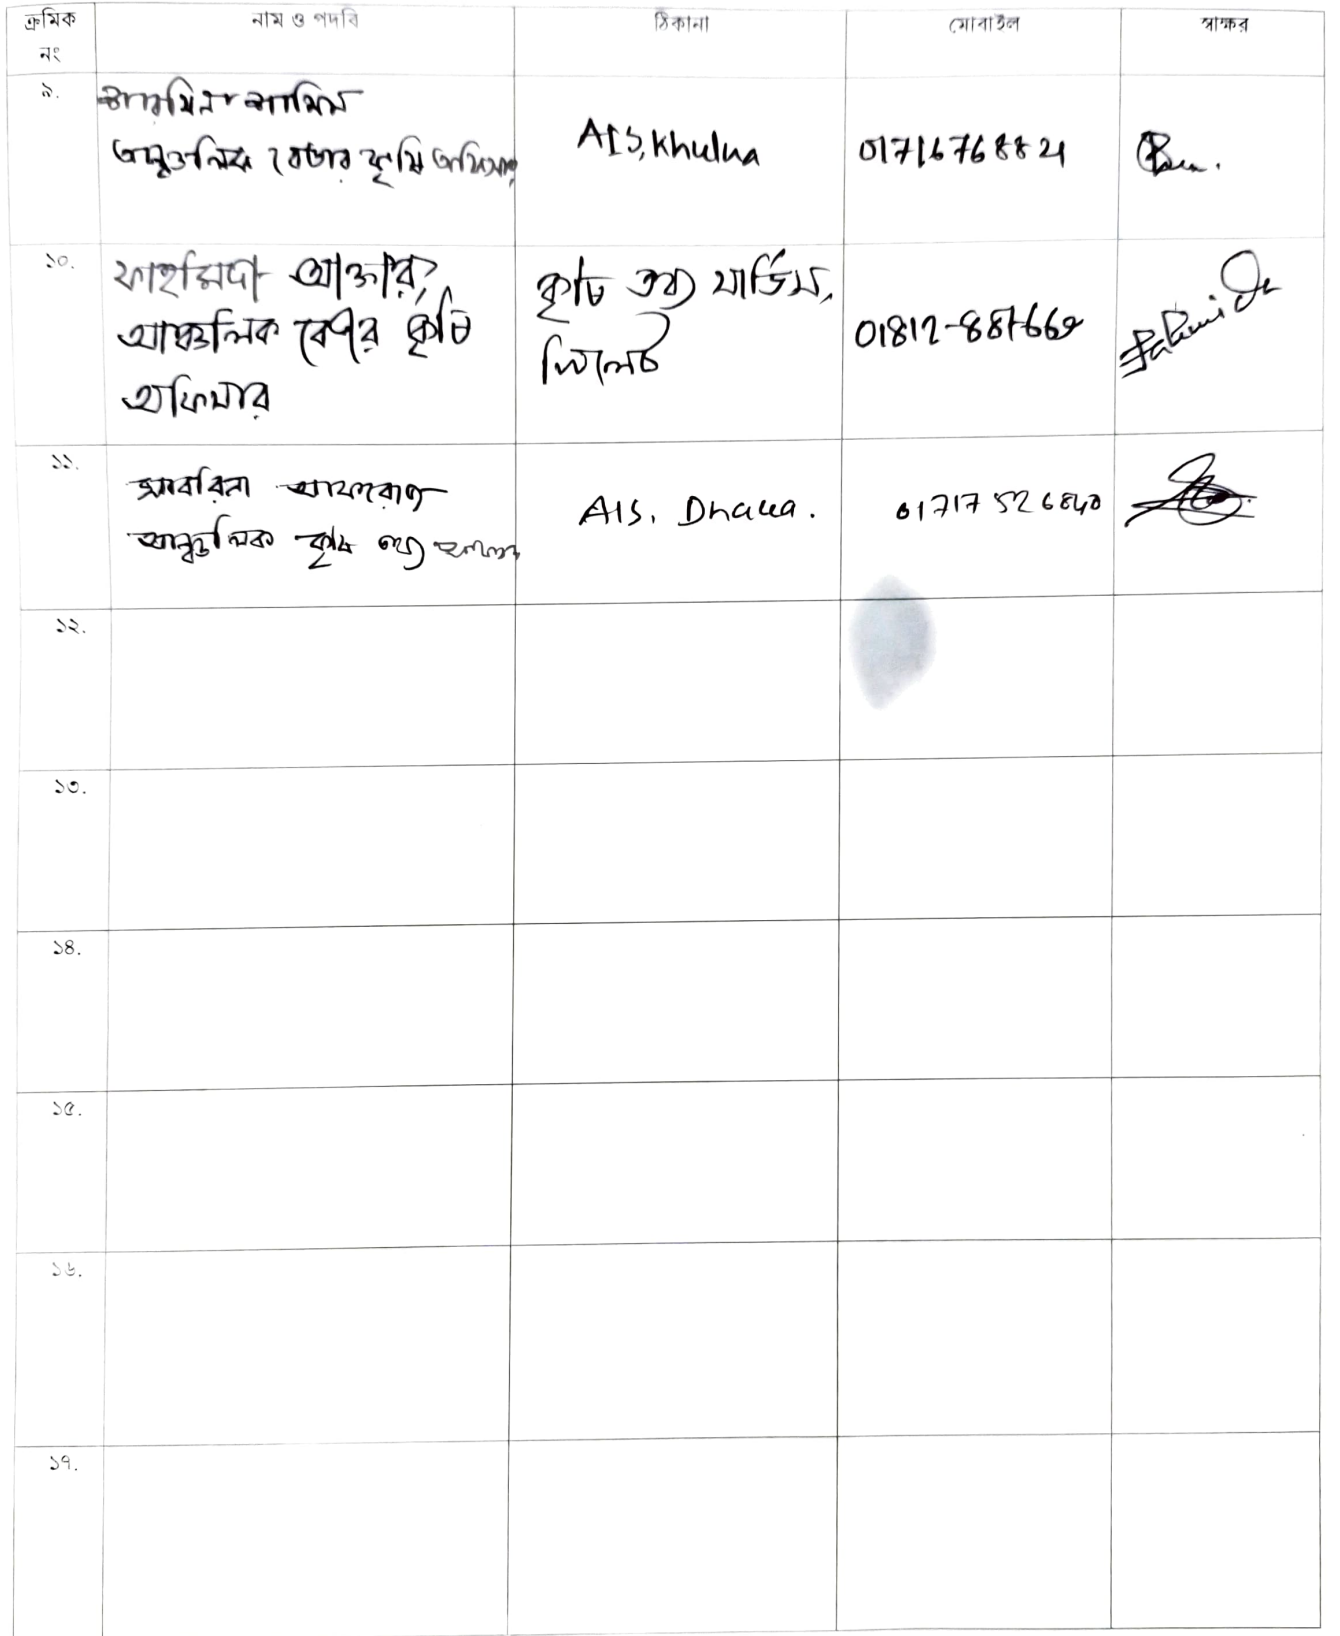 ক্রমিক নং নাম ও পদবি ঠিকানা মোবাইল স্বাক্ষর
৯. শারমিনা শামিম
আঞ্চলিক বেতার কৃষি অফিসার AIS, Khulna 01716768821
১০. ফাহমিদা আক্তার, কৃষি তথ্য সার্ভিস,
আঞ্চলিক বেতার কৃষি সিলেট 01812-881662 Fahmida
অফিসার
১১. সাবরিনা আফরোজ
আঞ্চলিক কৃষি তথ্য AIS, Dhaka. 01717526840
১২.
১৩.
১৪.
১৫.
১৬.
১৭.